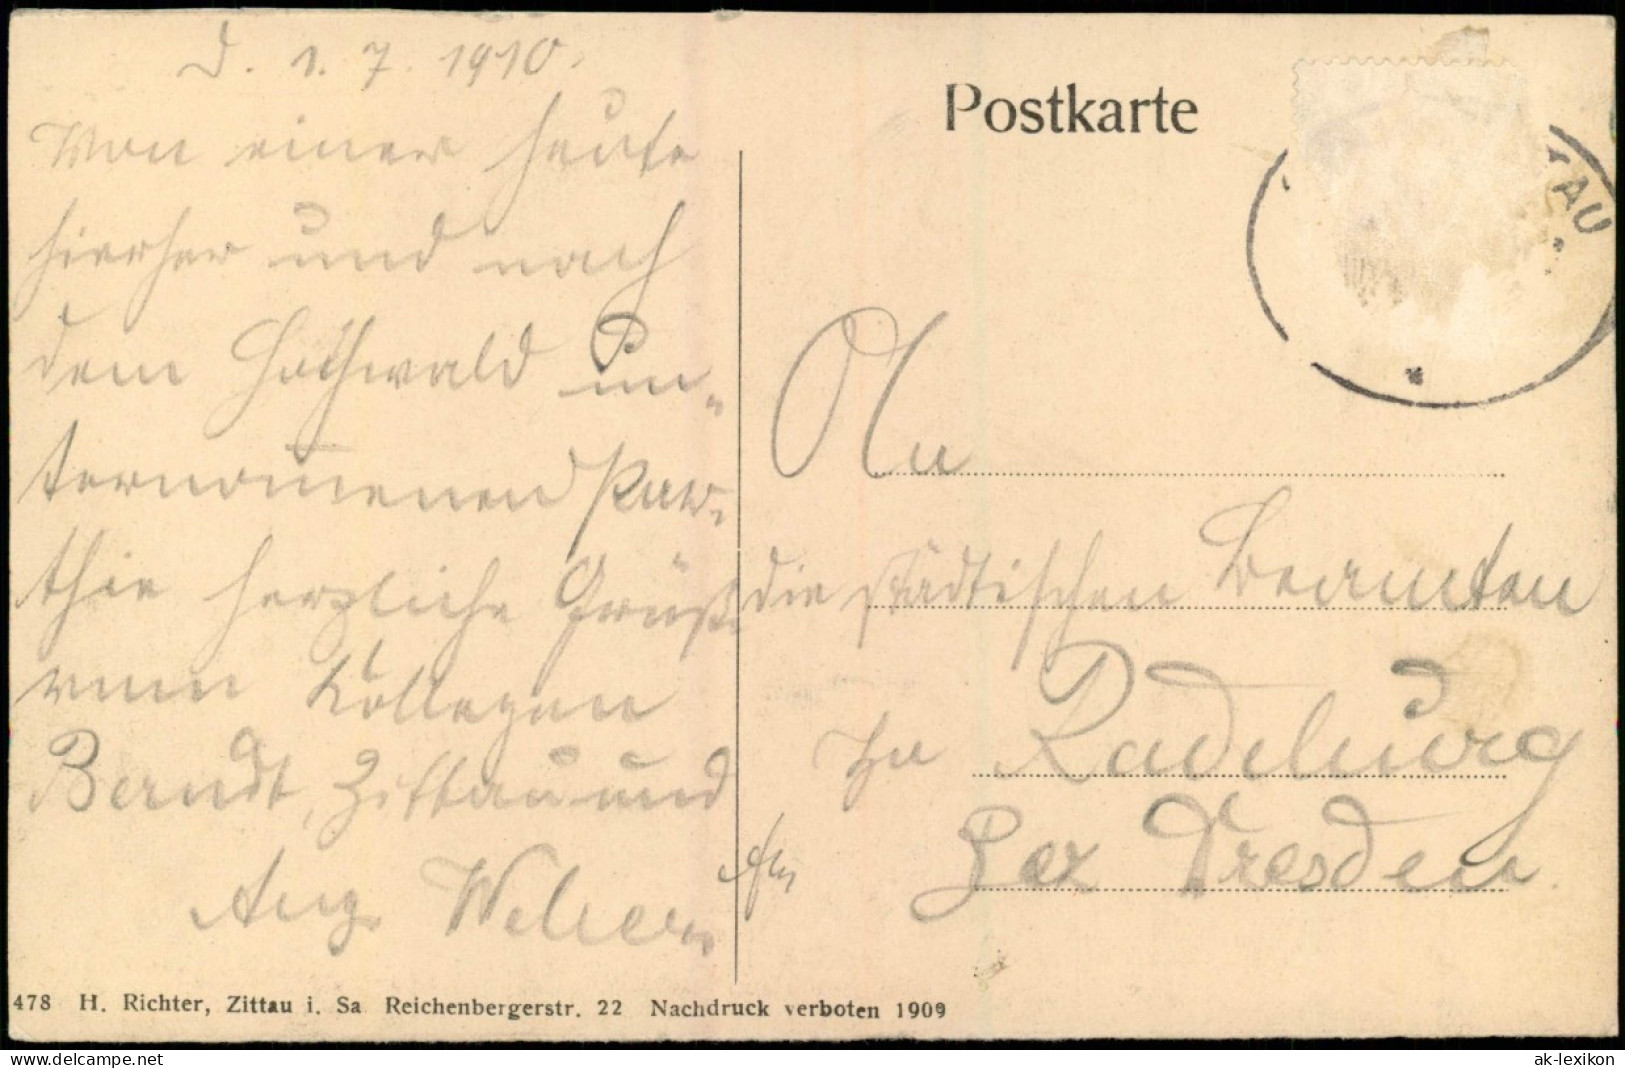 d. 1. 7. 1910.
Von einer heute
hierher und nach
dem Hochwald un-
ternom̅enen Par-
thie herzliche Grüße
vom Kollegen
Berndt, Zittau und
Aug. Weber
Postkarte
TAU
An
die städtischen Beamten
zu Radeburg
Bez Dresden.
478 H. Richter, Zittau i. Sa Reichenbergerstr. 22 Nachdruck verboten 1909
ak-ansichtskarten.de
ak-lexikon